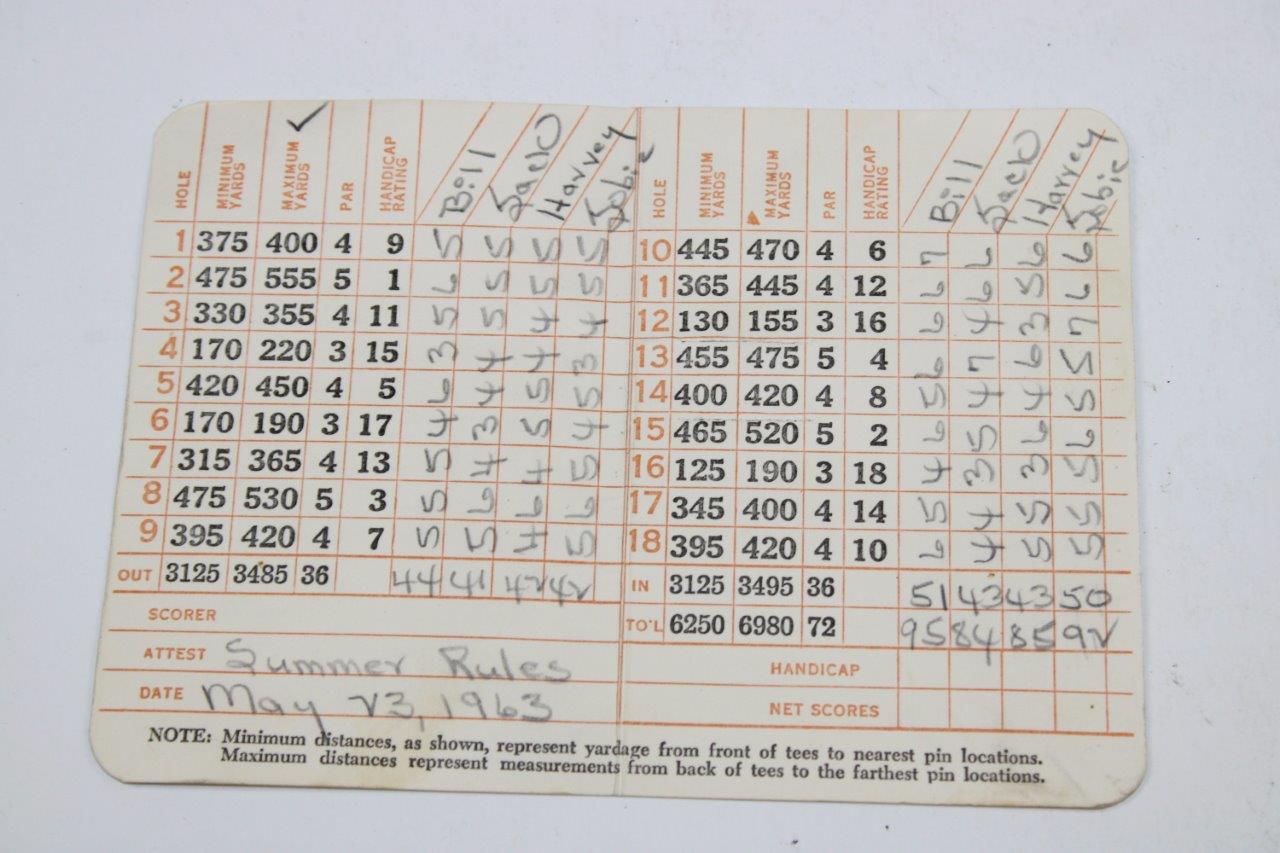 HOLE MINIMUM YARDS MAXIMUM YARDS PAR HANDICAP RATING Bill Jack Harvey Jobie
1 375 400 4 9 5 5 5 5
2 475 555 5 1 6 5 5 5
3 330 355 4 11 5 5 4 4
4 170 220 3 15 3 4 4 3
5 420 450 4 5 6 4 5 5
6 170 190 3 17 4 3 5 4
7 315 365 4 13 5 4 4 5
8 475 530 5 3 5 6 6 6
9 395 420 4 7 5 5 4 5
OUT 3125 3485 36 44 41 42 42
SCORER
ATTEST Summer Rules
DATE May 23, 1963
HOLE MINIMUM YARDS MAXIMUM YARDS PAR HANDICAP RATING Bill Jack Harvey Jobie
10 445 470 4 6 7 6 6 6
11 365 445 4 12 6 6 5 6
12 130 155 3 16 6 4 3 7
13 455 475 5 4 6 7 6 5
14 400 420 4 8 5 4 4 5
15 465 520 5 2 6 5 6 6
16 125 190 3 18 4 3 3 5
17 345 400 4 14 5 4 5 5
18 395 420 4 10 6 4 5 5
IN 3125 3495 36 51 43 43 50
TO'L 6250 6980 72 95 84 85 92
HANDICAP
NET SCORES
NOTE: Minimum distances, as shown, represent yardage from front of tees to nearest pin locations.
Maximum distances represent measurements from back of tees to the farthest pin locations.